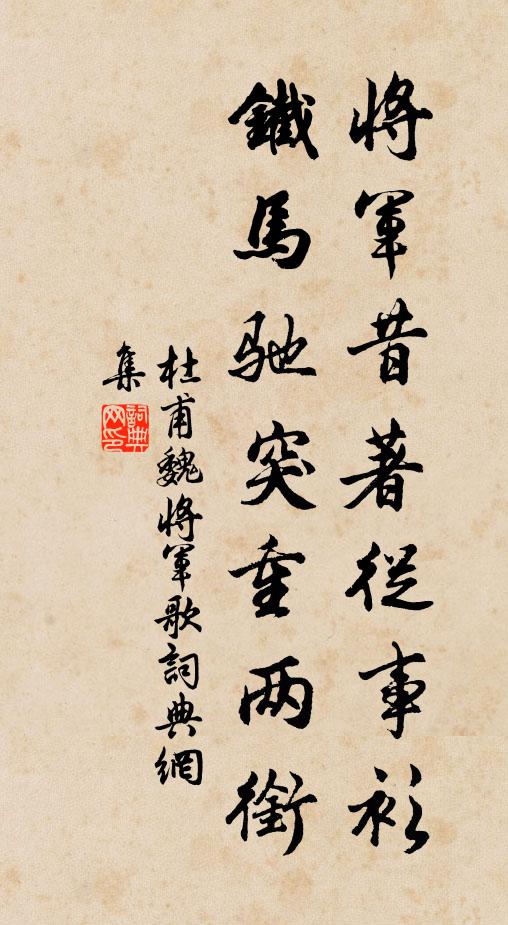 將軍昔著從事衫
鐵馬馳突重两銜
杜甫魏將軍歌詞典網
集
詞典
网印